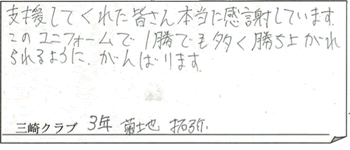 支援してくれた皆さん本当に感謝しています。
このユニフォームで1勝でも多く勝ち上がれ
られるように、がんばります。
三崎クラブ 3年 菊地 拓弥